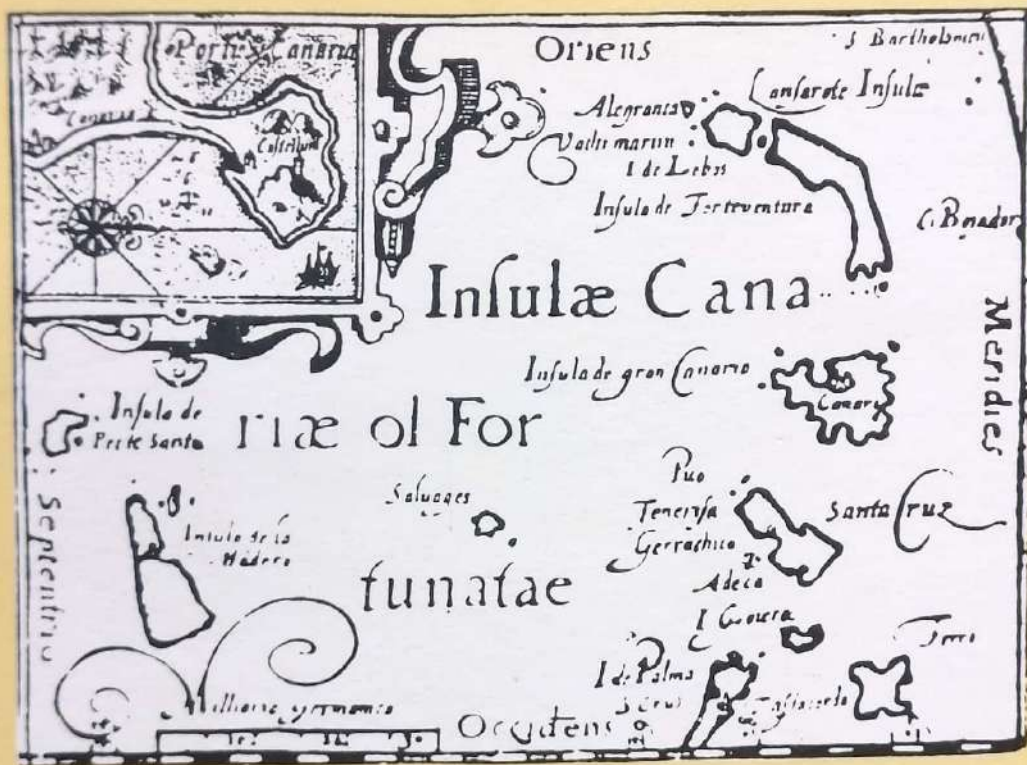 Portus Canaria
Canaria
Castellum
Oriens
S Bartholomeu
Lansarote Insulæ
Alegranza
I de Lobos
Insula de Forteventura
C. Bojador
Insulæ Cana
Meridies
Insula de gran Canaria
Canaria
Insula de
Porte Santo
riæ ol For
Septentrio
Salvages
Pico
Tenerifa
Santa Cruz
Gerrachico
Adeca
Insula de la
Madera
tunatae
I Gomera
Ferro
I de Palma
S Crus
Milliaria germanica
Occidens